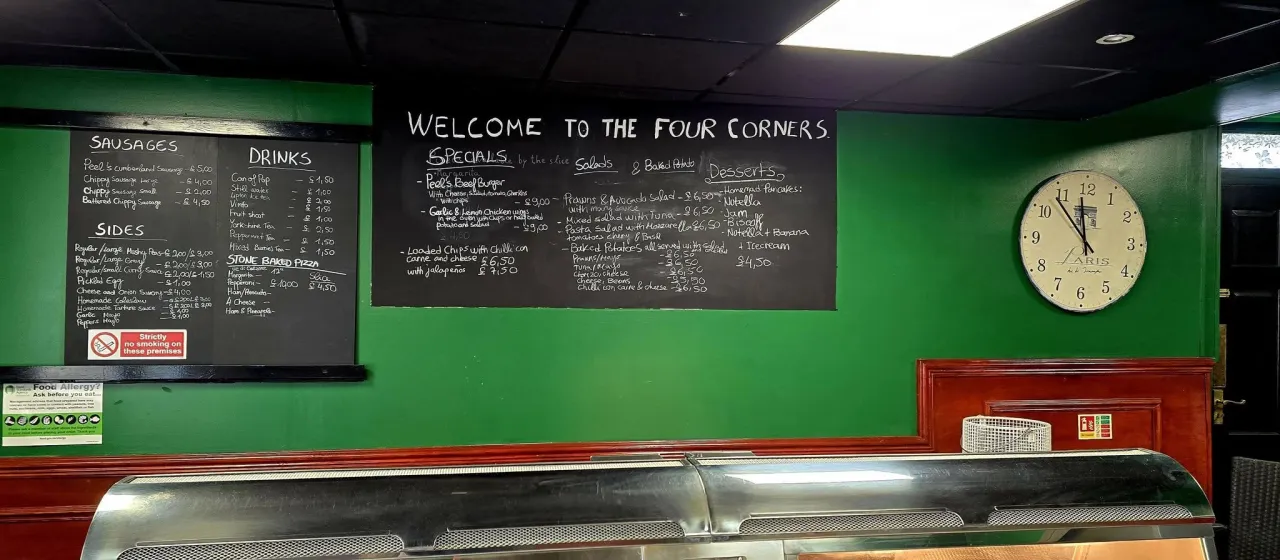 WELCOME TO THE FOUR CORNERS.
SAUSAGES
Peel's cumberland Sausage - £ 5,00
Chippy Sausage Large - £ 4,00
Chippy Sausage Small - £ 2,00
Battered Chippy Sausage - £ 4,50
SIDES
Regular/Large Mushy Peas - £2,00/£3,00
Regular/Large Gravy - £2,00/£3,00
Regular/small Curry Sauce - £2,00/£1,50
Pickled Egg - £ 1,00
Cheese and Onion Saveloy - £4,00
Homemade Coleslaw
Homemade Tartare Sauce
Garlic Mayo - £ 1,00
Peppers Mayo
Strictly
no smoking on
these premises
DRINKS
Can of Pop - £ 1,50
Still water - £ 1,00
Vimto - £ 2,00
Fruit shot - £ 1,00
Yorkshire Tea - £ 2,50
Peppermint Tea - £ 1,50
Mixed Berries Tea - £ 1,50
STONE BAKED PIZZA
12" Slice
Margarita
Pepperoni - £ 12,00 £ 4,50
Ham/
4 Cheese -
Ham & Pineapple -
SPECIALS
by the slice
Margarita
- Peel's Beef Burger
with Cheese, Salad, tomato, Gherkins
with chips - £9,00
- Garlic & Lemon Chicken wings
in the oven with chips or
potato and salad - £9,00
- Loaded Chips with Chilli con
carne and cheese £ 6,50
with jalapenos £ 7,50
Salads & Baked Potato
- Prawns & Avocado Salad - £ 6,50
with
- Mixed salad with Tuna - £ 6,50
- Pasta Salad with Mozzarella - £6,50
tomatoes cherry & Basil
- Baked Potatoes all served with Salad
Prawns/Mayo - £6,50
Tuna/Mayo - £6,50
Chorizo/cheese - £6,50
Cheese, Beans - £5,50
Chilli con carne & cheese - £6,50
Desserts
- Homemade Pancakes:
Nutella
Jam
Biscoff
Nutella + Banana
+ Icecream
£4,50
12
1
2
3
4
5
6
7
8
9
10
11
PARIS
Food Allergy?
Ask before you eat...